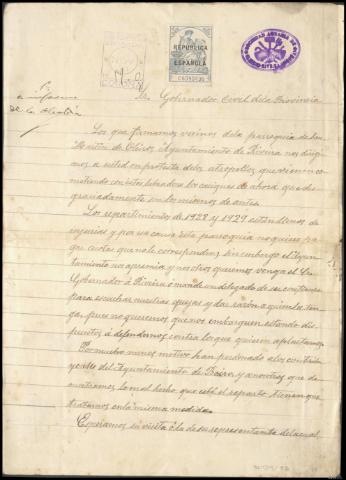 Sr. Gobernador Civil de la Provincia
REPÚBLICA
ESPAÑOLA
SOCIEDAD AGRARIA DE
a informe
de la Alcaldía
Los que firmamos vecinos de la parroquia de San
Martín de Oleiros Ayuntamiento de Riveira nos dirigi
mos a usted en protesta de los atropellos que vienen co
metiendo en estos labradores los caciques de ahora que des
graciadamente son los mismos de antes.
Los repartimientos de 1928 y 1929 están llenos de
injurias y por esa causa esta parroquia no quiso pa
gar cuotas que no le corresponden, sin embargo el Ayun
tamiento nos apremia y nosotros queremos venga el Sr.
Gobernador a Riveira o mande un delegado de su confianza
para escuchar nuestras quejas y dar razón a quien la ten
ga pues no queremos que nos embarguen estando dis
puestos a defendernos contra los que quieren aplastarnos.
Por mucho menos motivo han perdonado a los contrib
uyentes del Ayuntamiento de Boiro, y a nosotros que de
mostramos lo mal hecho que está el reparto tienen que
tratarnos en la misma medida.
Esperamos su visita o la de su representante del cual